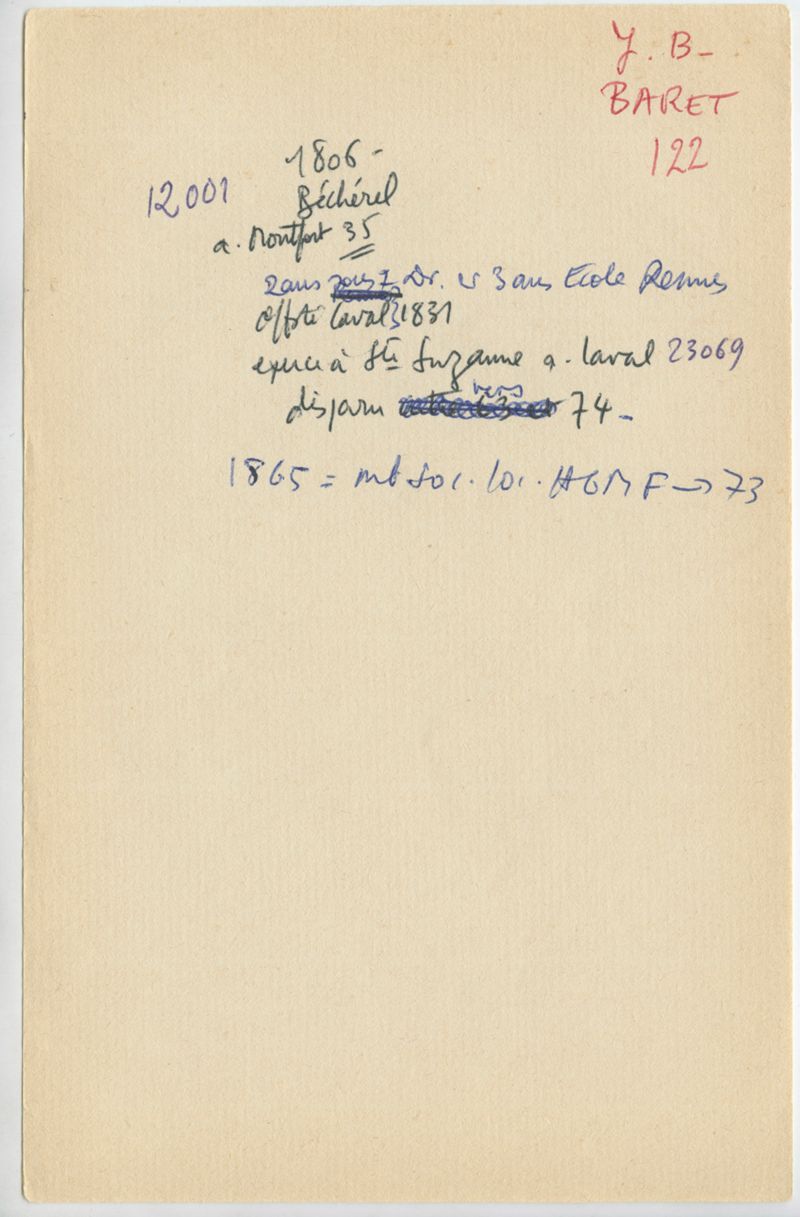 J. B-
BARET
122
1806-
12001 Béchérel
a. Montfort 35
2 ans Dr. et 3 ans Ecole Rennes
off. Laval 1831
exerce à Ste Suzanne a. Laval 23069
disparu vers 74-
1865 = mb soc. loc. AGMF → 73